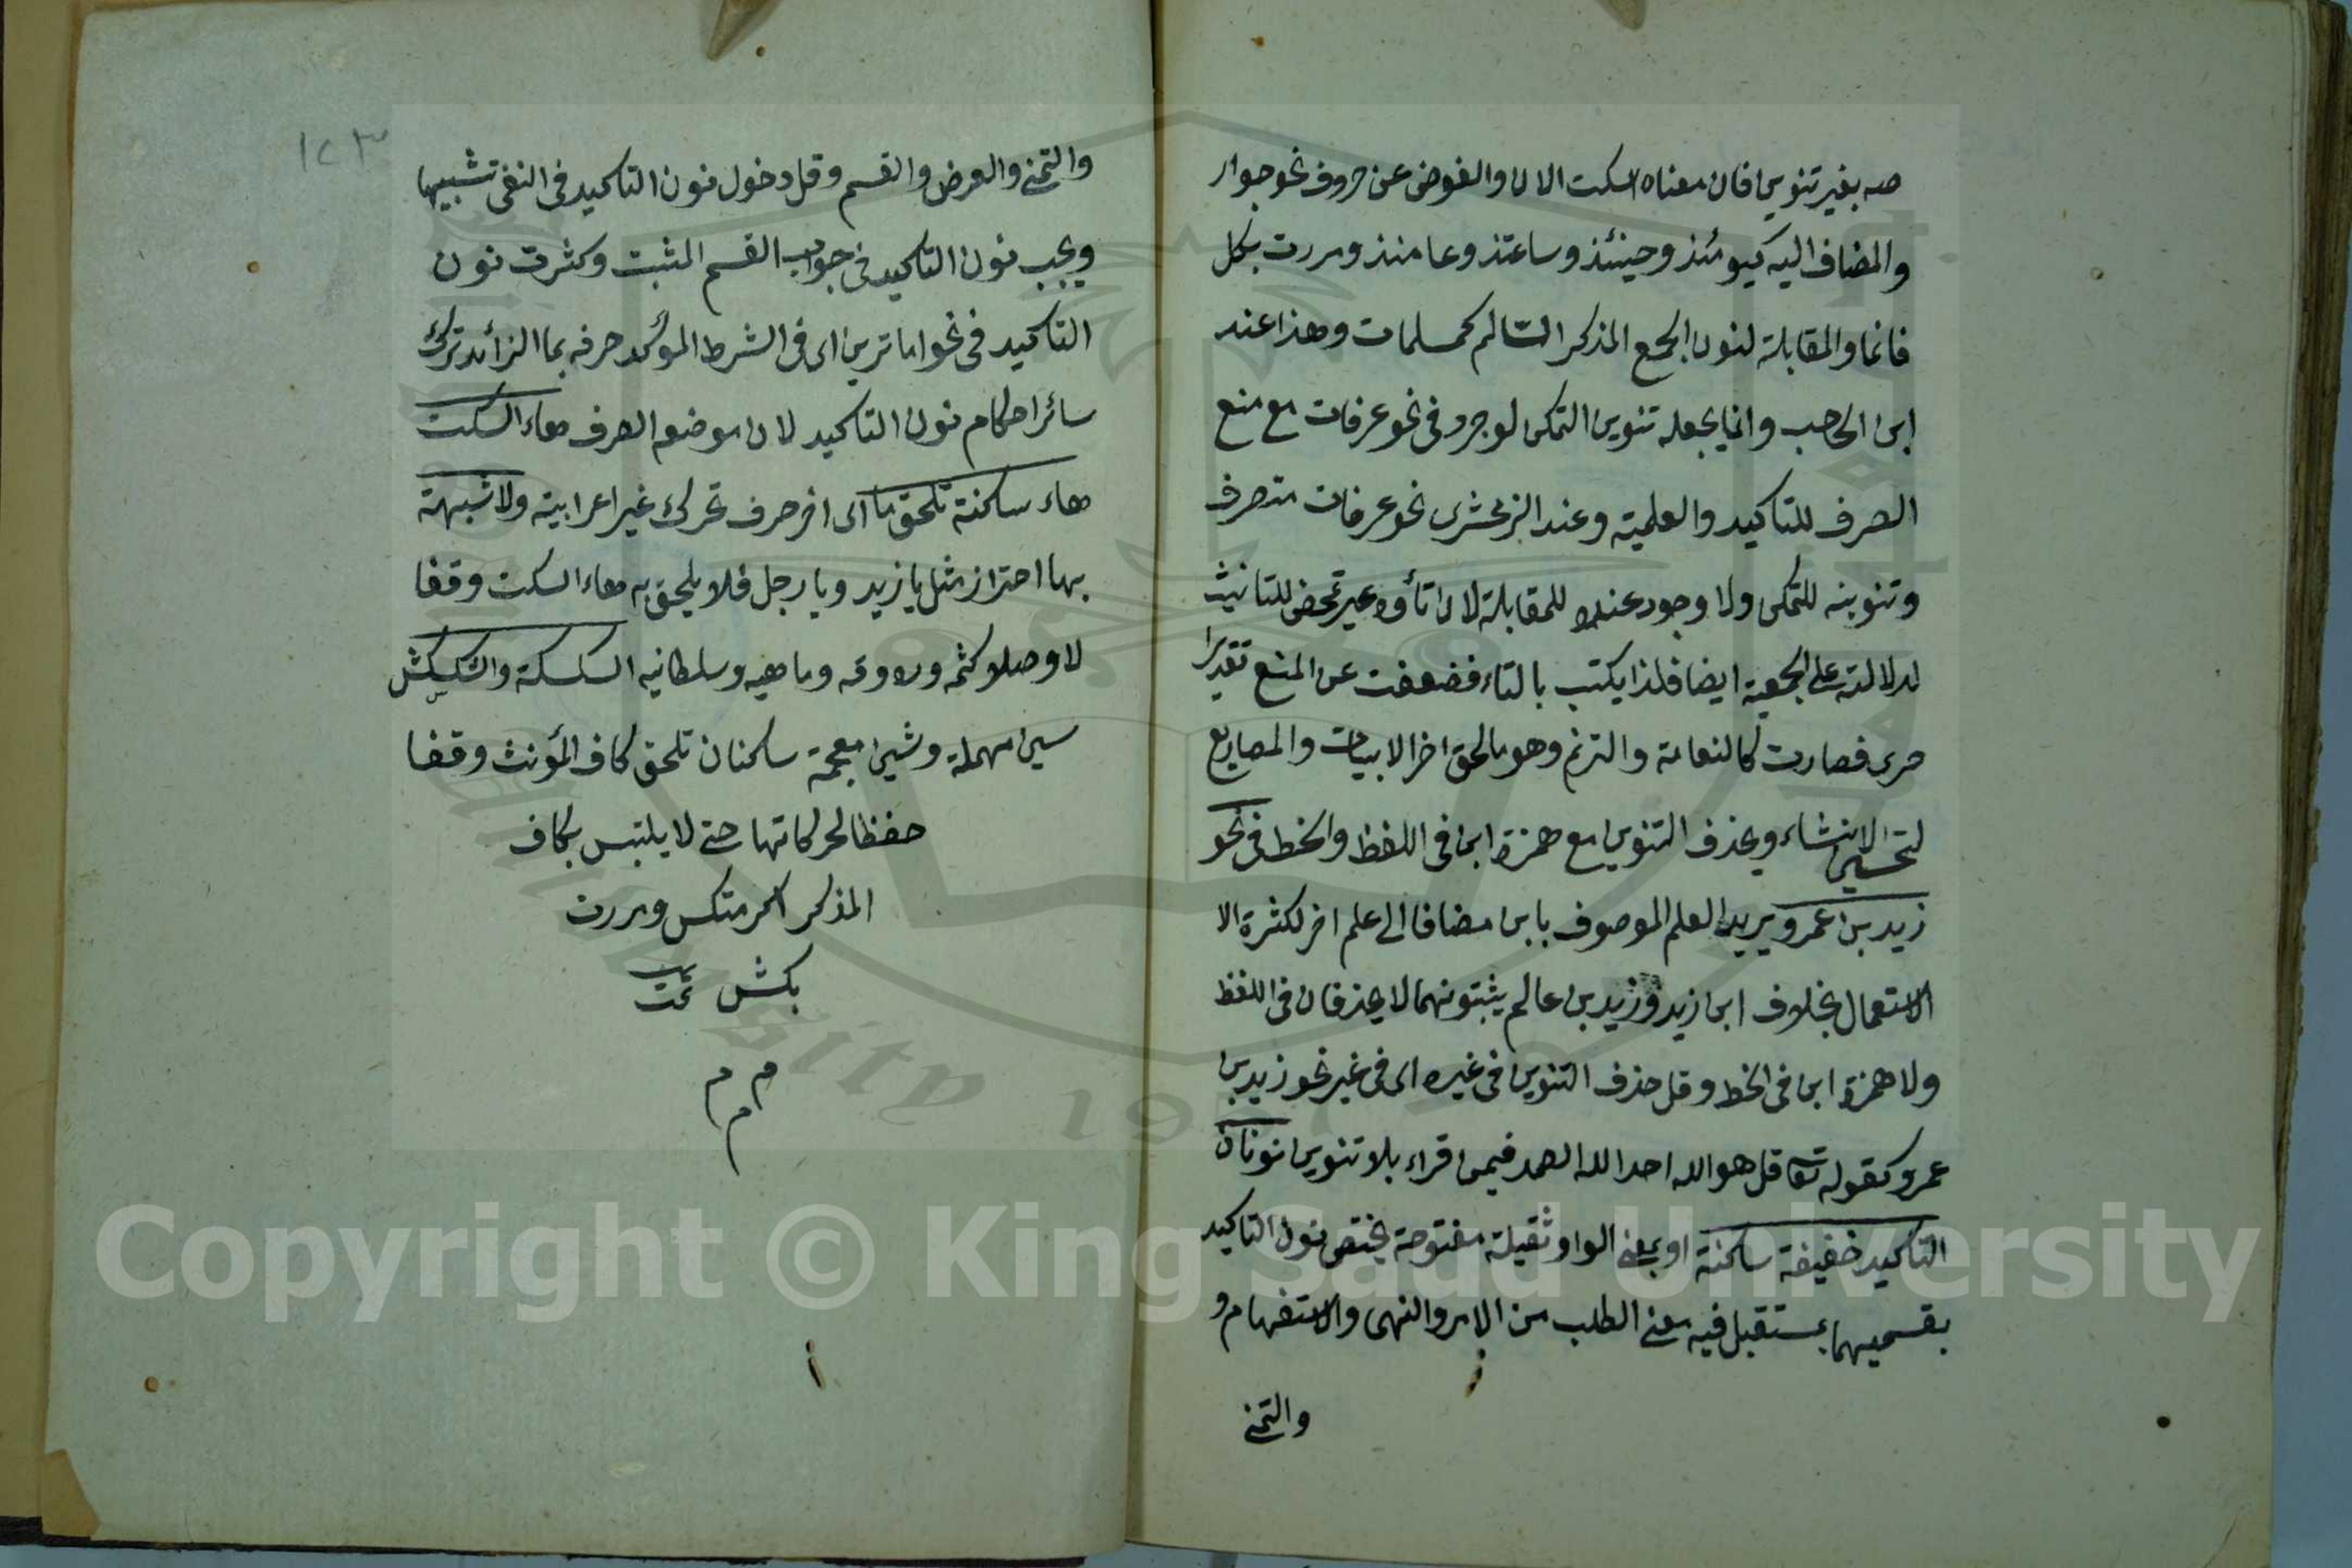 صه بغير تنوين فان معناه اسكت الان والعوض عن حروف نحو جوار
والمضاف اليه كيومئذ وحينئذ وساعتئذ وعامئذ ومررت بكل
قائما والمقابلة لنون الجمع المذكر السّالم كمسلمات وهذا عند
ابن الحاجب وانما يجعله تنوين التمكن لوجود فى نحو عرفات مع منع
الصرف للتاكيد والعلمية وعند الزمخشرى نحو عرفات متصرف
وتنوينه للتمكن ولا وجود عنده للمقابلة لان تأوه غير تمحض للتانيث
لدلالته على الجمعية ايضا فلذا يكتب بالتاء فضعفت عن المنع تقديرا
حرى فصارت كالنعامة والترنم وهو ما لحق اخر الابيات والمصاريع
لتحسين الانشاء ويحذف التنوين مع همزة ابن فى اللفظ والخط فى نحو
زيد بن عمرو يريد العلم الموصوف بابن مضافا الى علم اخر لكثرة الا
الاستعمال بخلاف ابن زيد وزيد بن عالم يثبتونهما لا يحذفان فى اللفظ
ولا همزة ابن فى الخط وقل حذف التنوين فى غيره اى فى غير نحو زيد بن
عمرو كقوله تعا قل هو الله احد الله الصمد فيمن قراء بلا تنوين نونان
التاكيد خفيفة ساكنة او بمعنى الواو ثقيلة مفتوحة يختص نون التاكيد
بقسميهما بمستقبل فيه معنى الطلب من الامر والنهى والاستفهام و
والتمنى
١٢٣
والتمنى والعرض والقسم وقل دخول نون التاكيد فى النفى تشبيها
ويجب نون التاكيد فى جواب القسم المثبت وكثرت نون
التاكيد فى نحو اما ترين اى فى الشرط المؤكد حرفه بما الزائد ترك
سائر احكام نون التاكيد لان موضعه الصرف هاء السكت
هاء ساكنة تلحق ما اى اخر حرف تحرك غير اعرابية ولا شبيهة
بها احتراز مثل يا زيد ويا رجل فلا يلحق به هاء السكت وقفا
لا وصلا كثمه وره وعه وما هيه وسلطانيه السكسكة والشكشكش
سين مهملة وشين معجمة ساكنان تلحق كاف المؤنث وقفا
حفظا لحركاتها حتى لا يلتبس بكاف
المذكر اكرمتكس ومررت
بكش تمت
م م
م
Copyright © King Saud University